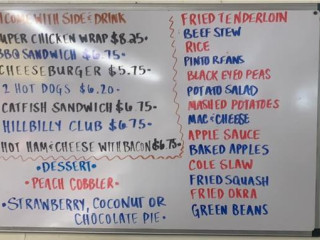 COME WITH SIDE & DRINK
UPER CHICKEN WRAP $8.25•
BBQ SANDWICH $6.75•
CHEESEBURGER $5.75•
2 HOT DOGS $6.20•
CATFISH SANDWICH $6.75•
HILLBILLY CLUB $6.75•
HOT HAM & CHEESE WITH BACON $6.75•
•DESSERT•
•PEACH COBBLER•
•STRAWBERRY, COCONUT OR
CHOCOLATE PIE•
FRIED TENDERLOIN
BEEF STEW
RICE
PINTO BEANS
BLACK EYED PEAS
POTATO SALAD
MASHED POTATOES
MAC & CHEESE
APPLE SAUCE
BAKED APPLES
COLE SLAW
FRIED SQUASH
FRIED OKRA
GREEN BEANS